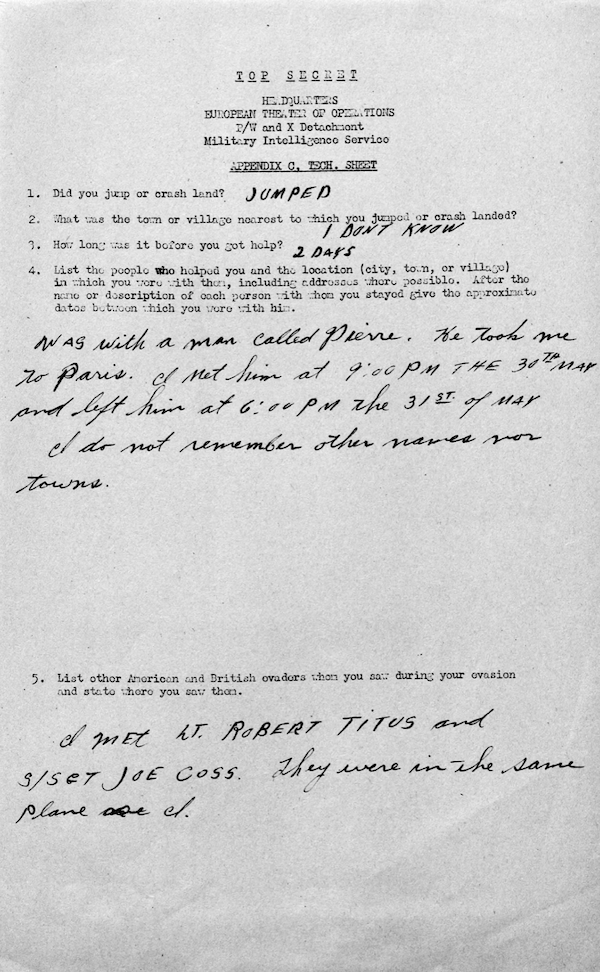 TOP SECRET
HEADQUARTERS
EUROPEAN THEATER OF OPERATIONS
P/W and X Detachment
Military Intelligence Service
APPENDIX C, TECH. SHEET
1. Did you jump or crash land? JUMPED
2. What was the town or village nearest to which you jumped or crash landed?
I DONT KNOW
3. How long was it before you got help? 2 DAYS
4. List the people who helped you and the location (city, town, or village)
in which you were with them, including addresses where possible. After the
name or description of each person with whom you stayed give the approximate
dates between which you were with him.
WAS with a man called Pierre. He took me
to Paris. I met him at 9:00 PM THE 30TH MAY
and left him at 6:00 PM the 31ST. of MAY
I do not remember other names nor
towns.
5. List other American and British evaders whom you saw during your evasion
and state where you saw them.
I MET LT. ROBERT TITUS and
S/SGT JOE COSS. They were in the same
plane as I.